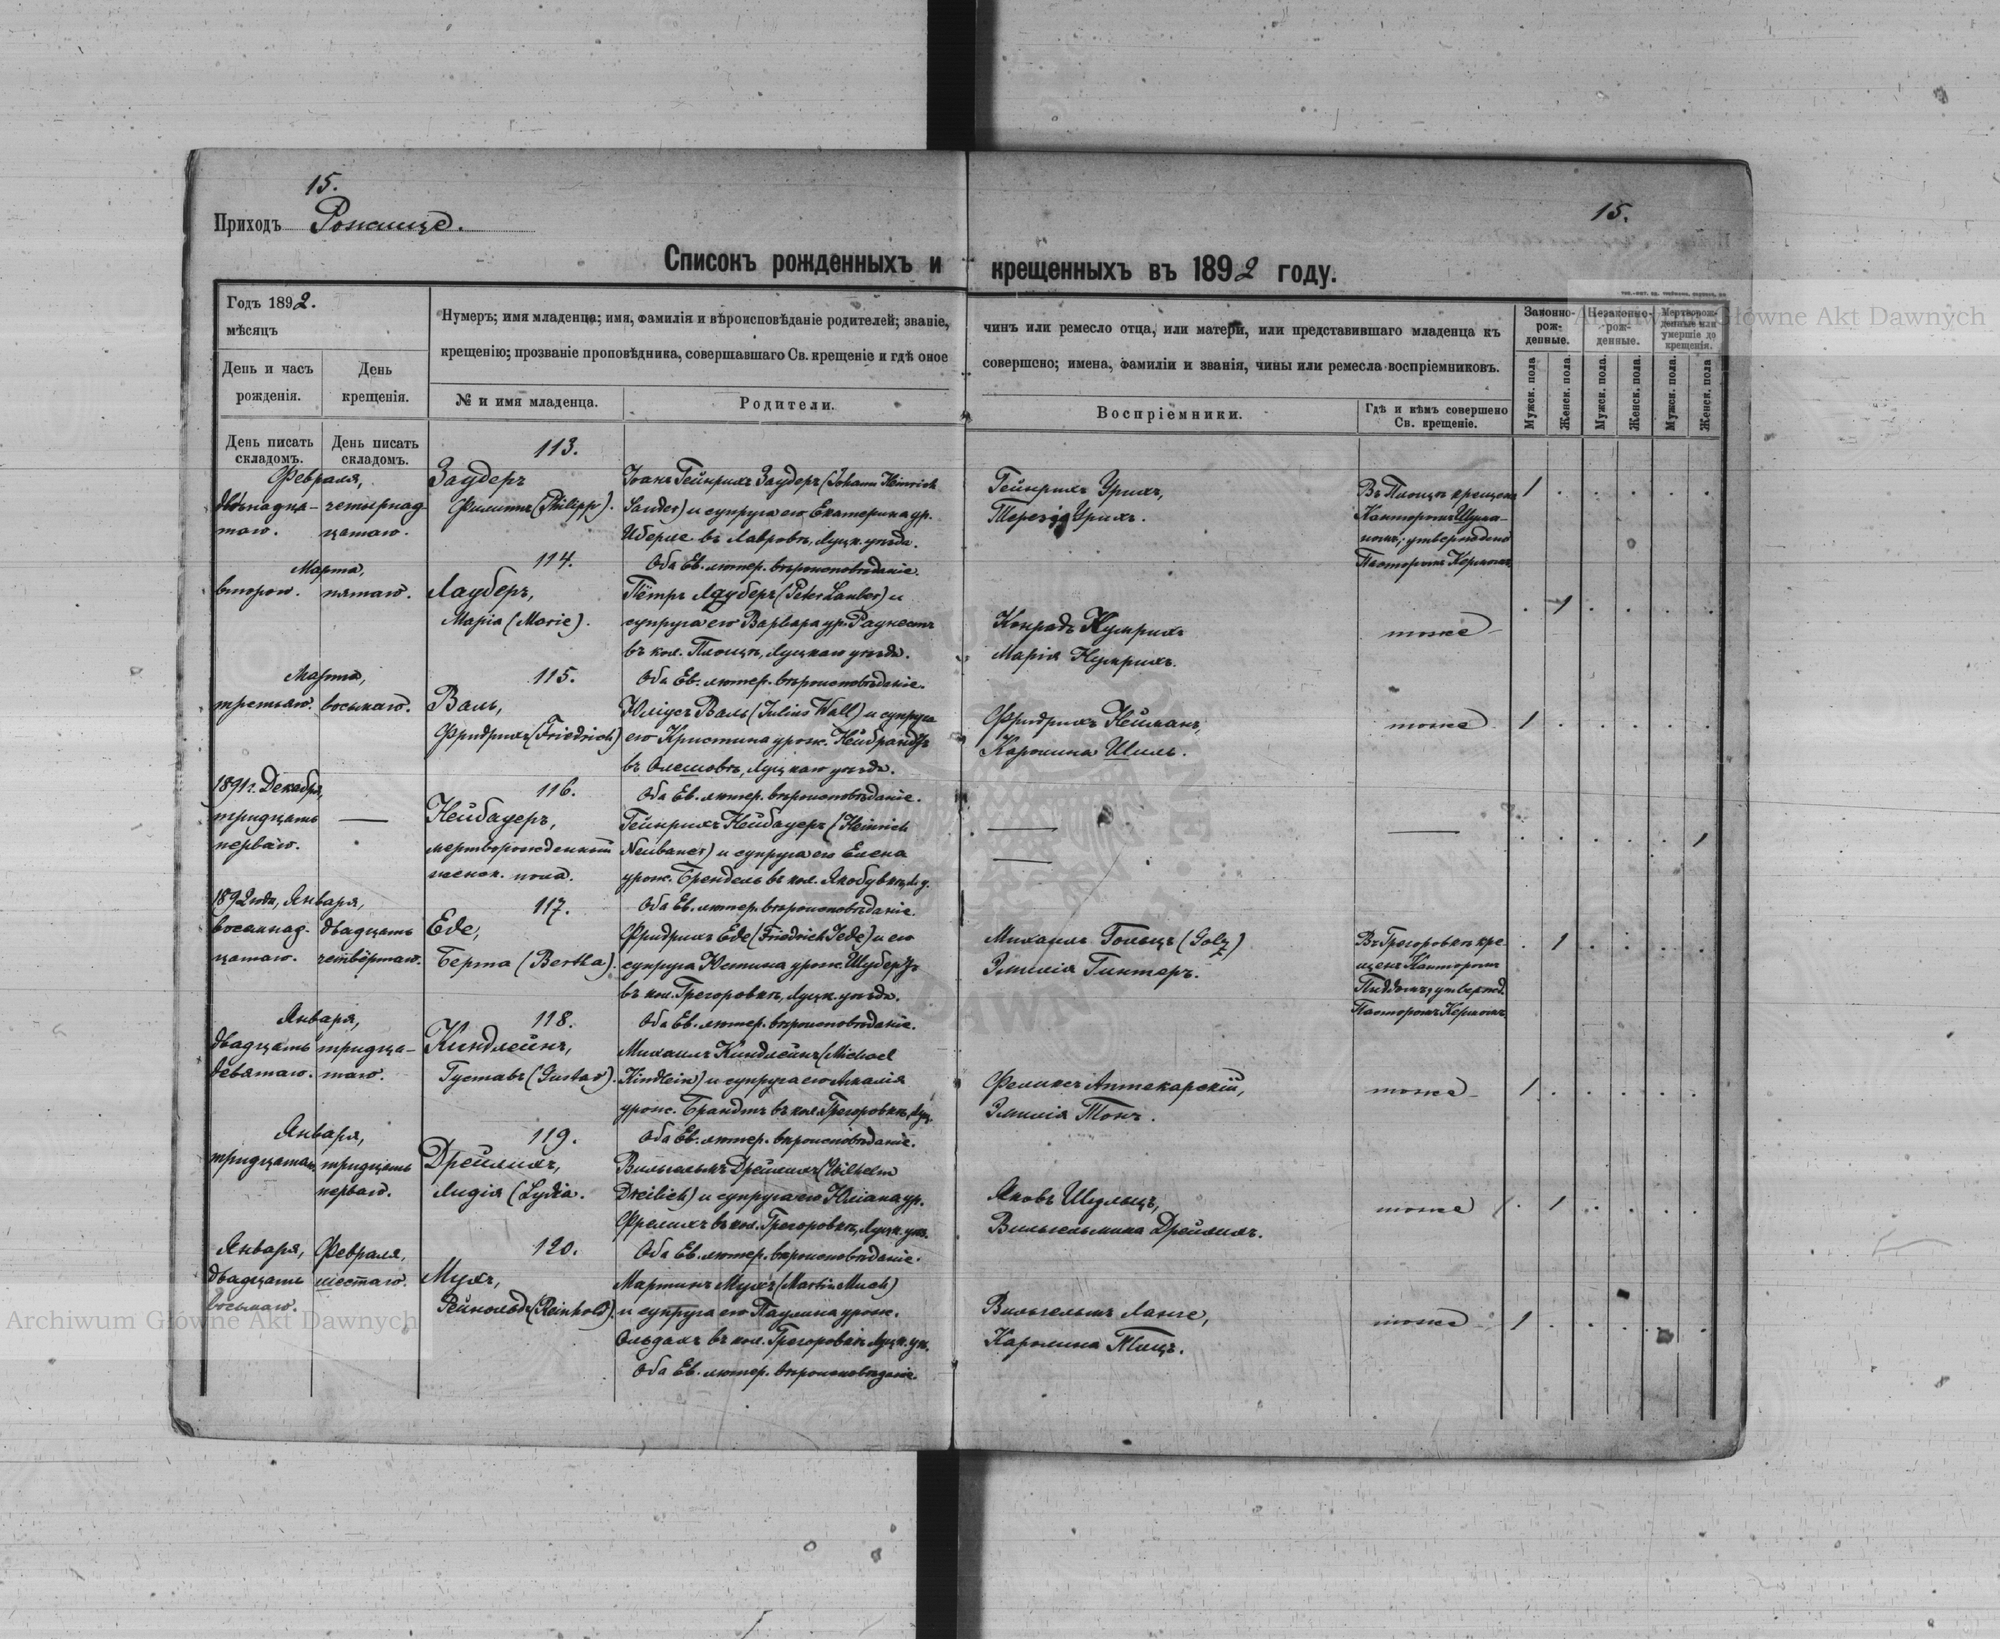 15.
Приходъ Рожище.
15.
Списокъ рожденныхъ и крещенныхъ въ 1892 году.
Годъ 1892.
мѣсяцъ
День и часъ рожденія.
День крещенія.
Нумеръ; имя младенца; имя, фамилія и вѣроисповѣданіе родителей; званіе, чинъ или ремесло отца, или матери, или представившаго младенца къ
крещенію; прозваніе проповѣдника, совершавшаго Св. крещеніе и гдѣ оное совершено; имена, фамиліи и званія, чины или ремесла воспріемниковъ.
№ и имя младенца.
Родители.
Воспріемники.
Гдѣ и кѣмъ совершено
Св. крещеніе.
Законно-рож-денные.
Незаконно-рож-денные.
Мертворож-денные или умершіе до крещенія.
Мужск. пола
Женск. пола.
Мужск. пола.
Женск. пола.
Мужск. пола.
Женск. пола.
День писать складомъ.
День писать складомъ.
113.
Февраля,
двѣнадца-
таго.
четырнад
цатаго.
Заудеръ
Филиппъ (Philipp).
Іоанъ Гейнрихъ Заудеръ (Johann Heinrich
Sauder) и супруга его Екатерина ур.
Иберле въ Лавровѣ, Луцк. уѣзда.
Оба Ев. лютер. вѣроисповѣданіе.
Гейнрихъ Урихъ,
Терезія Урихъ.
Въ Площѣ крещенъ
Канторомъ Шума-
номъ; утверждено
Пасторомъ Кермомъ
1 . . . . .
114.
Марта,
второго.
пятаго.
Лауберъ,
Марія (Marie).
Пётръ Лауберъ (Peter Lauber) и
супруга его Варвара ур. Раунестъ
въ кол. Площѣ, Луцкаго уѣзда.
Оба Ев. лютер. вѣроисповѣданіе.
Конрадъ Кумрихъ
Марія Кумрихъ.
тоже
. 1 . . . .
115.
Марта,
третьяго.
восьмаго.
Валь,
Фридрихъ (Friedrich)
Юліусъ Валь (Julius Wall) и супруга
его Кристина урож. Нейбрандъ
въ Олешовѣ, Луцкаго уѣзда.
Оба Ев. лютер. вѣроисповѣданіе.
Фридрихъ Нейманъ,
Каролина Шиль.
тоже
1 . . . . .
1891 г. Декабря,
тридцать
перваго.
116.
Нейбауеръ,
мертворожденный
женск. пола.
Гейнрихъ Нейбауеръ (Heinrich
Neubauer) и супруга его Елена
урож. Брендель въ кол. Якобувкѣ, Л. у.
Оба Ев. лютер. вѣроисповѣданіе.
. . . . . 1
1892 года, Января,
восемнад-
цатаго.
двадцать
четвёртаго.
117.
Еде,
Берта (Bertha).
Фридрихъ Еде (Friedrich Jede) и его
супруга Юстина урож. Шубертъ
въ кол. Грегоровкѣ, Луцк. уѣзда.
Оба Ев. лютер. вѣроисповѣданіе.
Михаилъ Гольцъ (Golz)
Эмилія Гинтеръ.
Въ Грегоровкѣ кре
щенъ Канторомъ
утвержд.
Пасторомъ Кермомъ
. 1 . . . .
Января,
двадцать
девятаго.
тридца-
таго.
118.
Киндлейнъ,
Густавъ (Gustav).
Михаилъ Киндлейнъ (Michael
Kindlein) и супруга его Амалія
урож. Брандтъ въ кол. Грегоровкѣ, Луц.
Оба Ев. лютер. вѣроисповѣданіе.
Феликсъ Аптекарскій,
Эмилія Тонъ.
тоже
1 . . . . .
Января,
тридцатаго
тридцать
перваго.
119.
Дрейлихъ,
Лидія (Lydia.
Вильгельмъ Дрейлихъ (Wilhelm
Dreilich) и супруга его Юліана ур.
Фрелихъ въ кол. Грегоровкѣ, Луцк. уѣз.
Оба Ев. лютер. вѣроисповѣданіе.
Яковъ Шульцъ,
Вильгельмина Дрейлихъ.
тоже
. 1 . . . .
Января,
двадцать
восьмаго.
Февраля,
шестаго.
120.
Мухъ,
Рейнольдъ (Reinhold).
Мартинъ Мухъ (Martin Much)
и супруга его Паулина урож.
Ольдахъ въ кол. Грегоровкѣ Луцк. уѣ.
Оба Ев. лютер. вѣроисповѣданіе.
Вильгельмъ Ланге,
Каролина Тицъ.
тоже
1 . . . . .
Archiwum Główne Akt Dawnych
Archiwum Główne Akt Dawnych